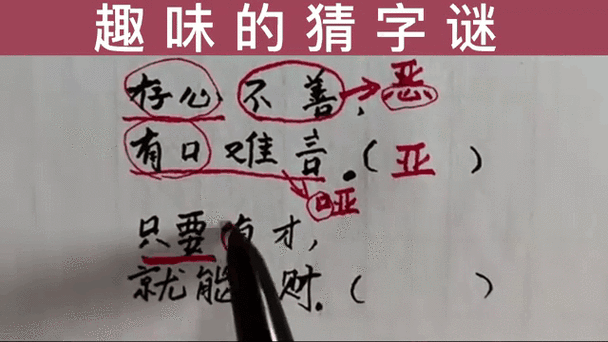 趣味的猜字谜
存心不善,恶
有口难言.(亚)
哑
只要有才,
就能财.( )